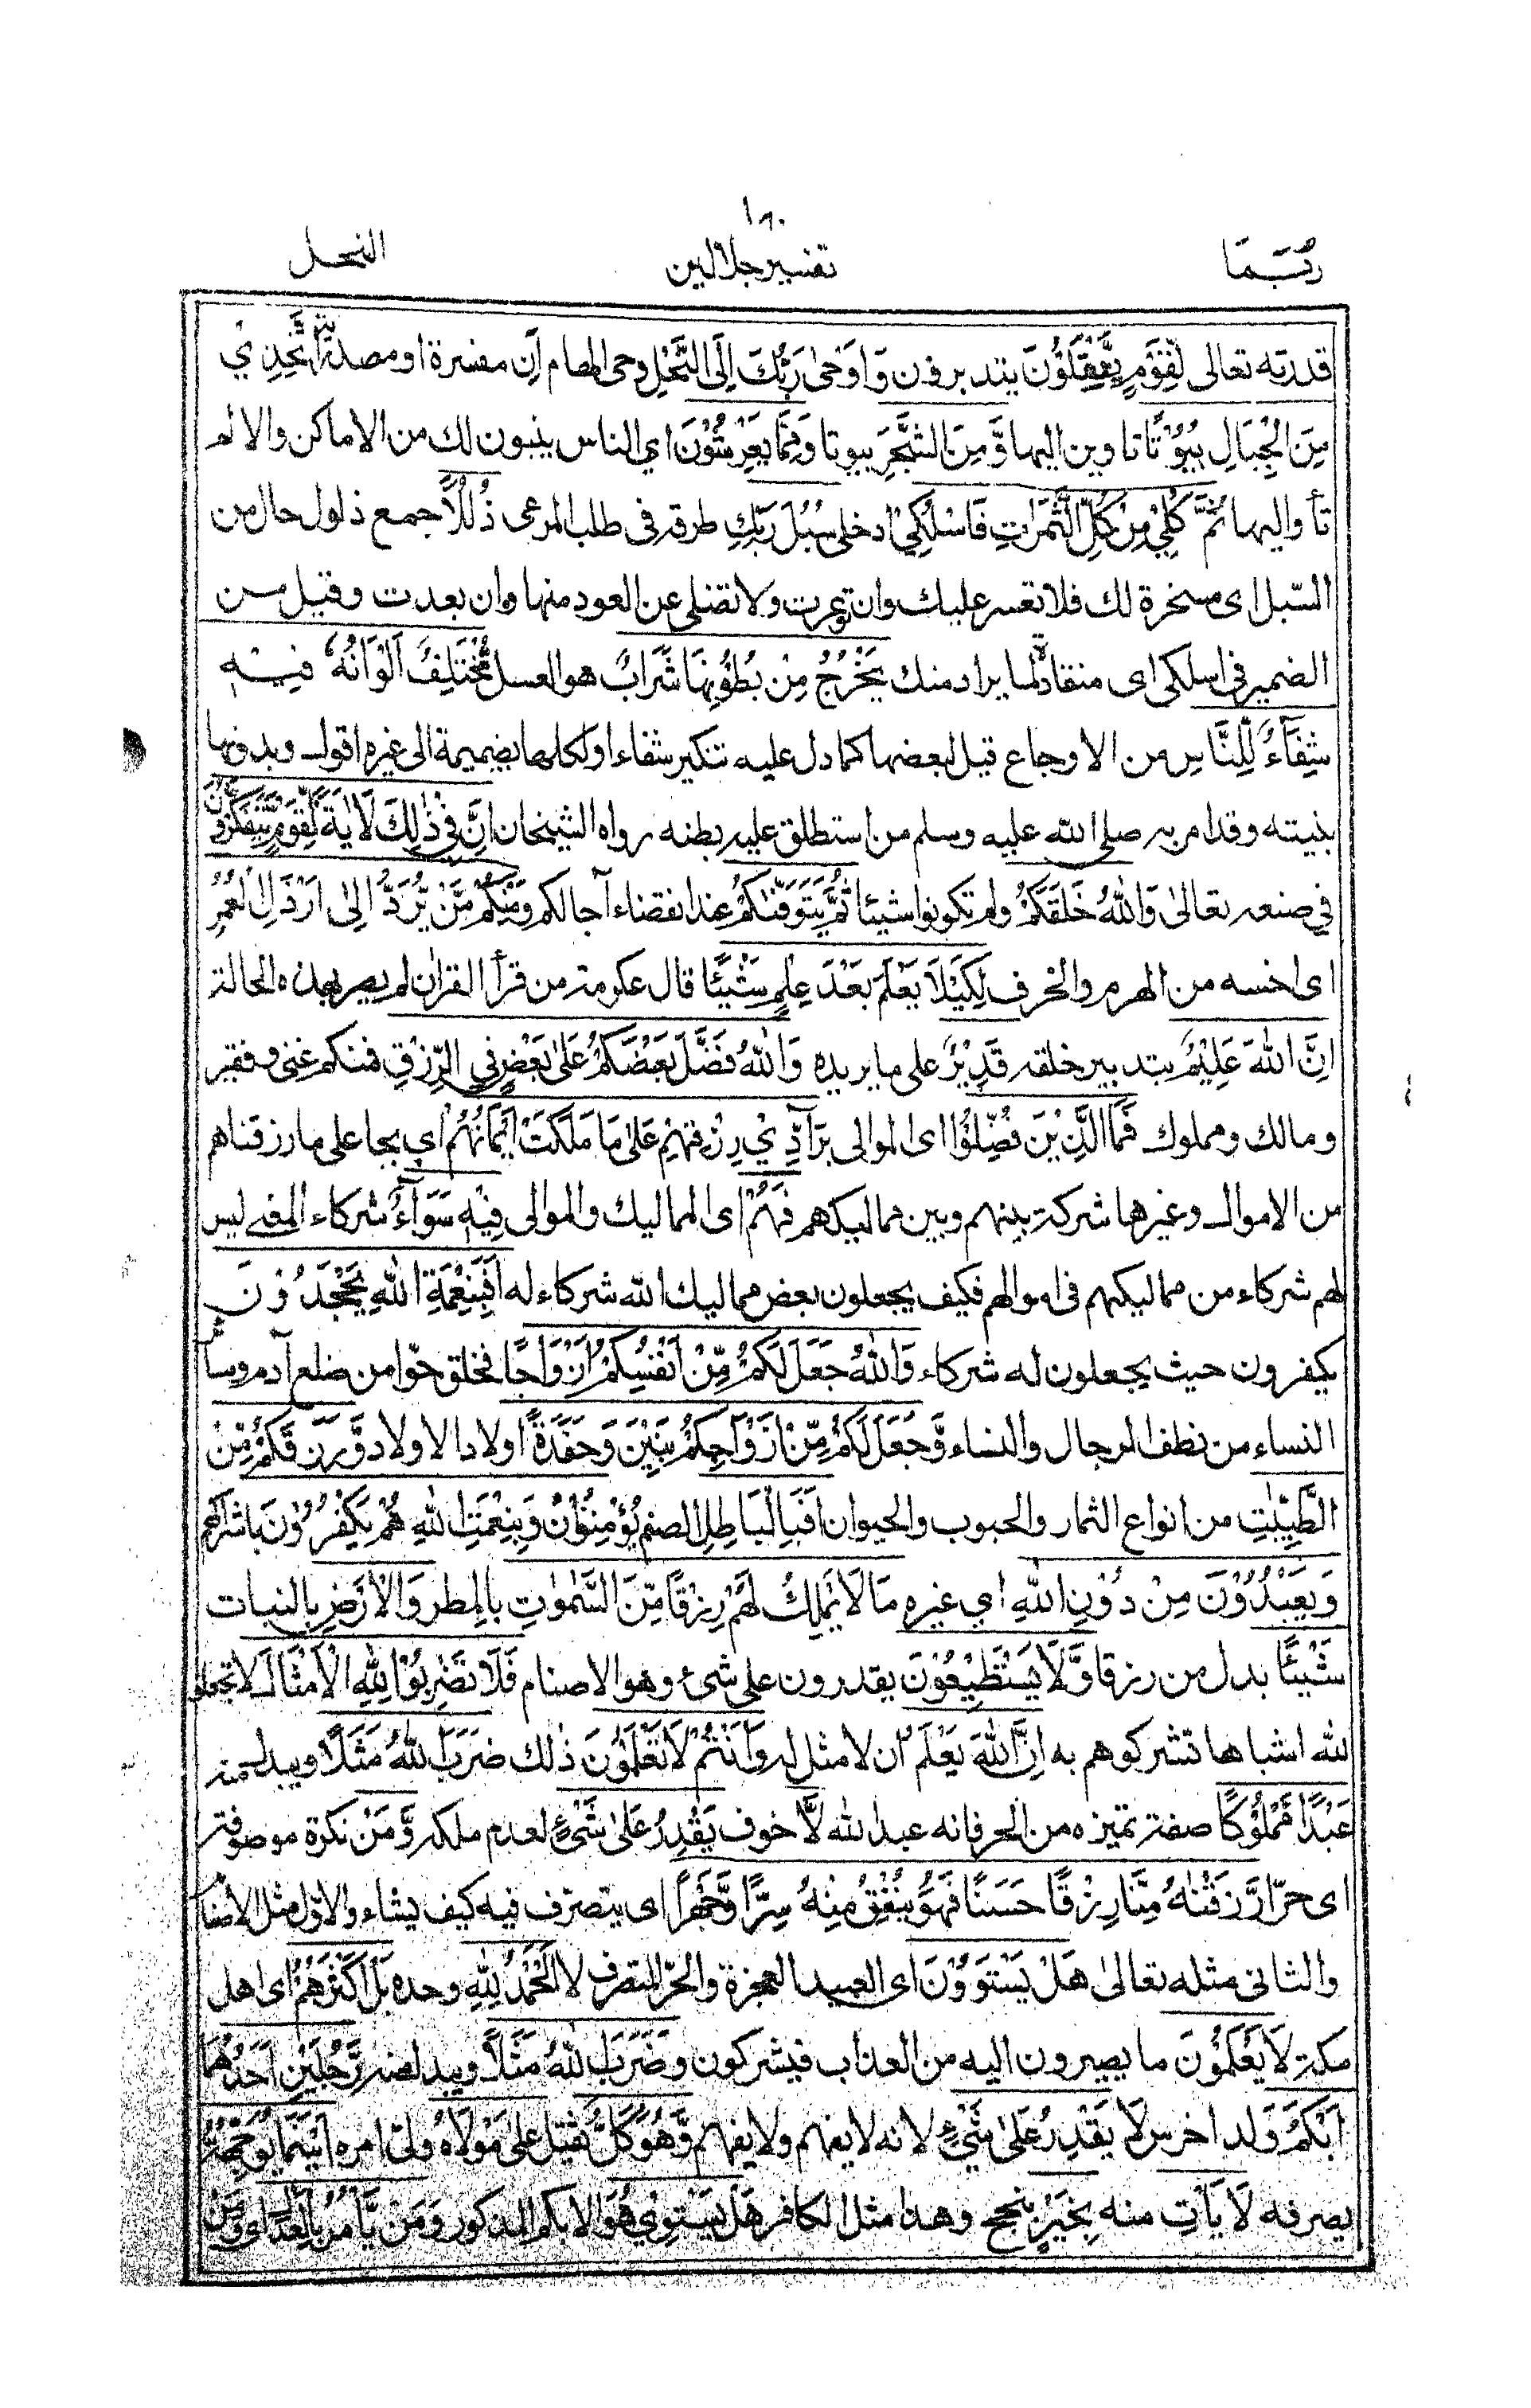 ١٨٠
ربما تفسير جلالين النحل
قدرته تعالى لِّقَوْمٍ يَّعْقِلُوْنَ يتدبرون وَاَوْحٰى رَبُّكَ اِلَى النَّحْلِ وحى الهام اَنِ مفسرة او مصدرية اتَّخِذِيْ
مِنَ الْجِبَالِ بُيُوْتًا تاوين اليها وَّمِنَ الشَّجَرِ بيوتا وَمِمَّا يَعْرِشُوْنَ اي الناس يبنون لك من الاماكن والا لم
تأو اليها ثُمَّ كُلِيْ مِنْ كُلِّ الثَّمَرَاتِ فَاسْلُكِيْ ادخلى سُبُلَ رَبِّكِ طرقه فى طلب المرعى ذُلُلًا جمع ذلول حال من
السّبل اى مسخرة لك فلا تعسر عليك وان توعرت ولا تضلى عن العود منها وان بعدت وقيل من
الضمير فى اسلكى اى منقادة لما يراد منك يَخْرُجُ مِنْ بُطُوْنِهَا شَرَابٌ هو العسل مُّخْتَلِفٌ اَلْوَانُهٗ فِيْهِ
شِفَآءٌ لِّلنَّاسِ من الاوجاع قيل لبعضها كما دل عليه تنكير شفاء او لكلها بضميمة الى غيره اقول وبدونها
بنيته وقد امر به صلى الله عليه وسلم من استطلق عليه بطنه رواه الشيخان اِنَّ فِيْ ذٰلِكَ لَاٰيَةً لِّقَوْمٍ يَّتَفَكَّرُوْنَ
في صنعه تعالىٰ وَاللّٰهُ خَلَقَكُمْ ولم تكونوا شيئا ثُمَّ يَتَوَفّٰىكُمْ عند انقضاء آجالكم وَمِنْكُمْ مَّنْ يُّرَدُّ اِلٰى اَرْذَلِ الْعُمُرِ
اى اخسه من الهرم والخرف لِكَيْلَا يَعْلَمَ بَعْدَ عِلْمٍ شَيْئًا قال عكرمة من قرأ القران لم يصر بهذه الحالة
اِنَّ اللّٰهَ عَلِيْمٌ بتدبير خلقه قَدِيْرٌ على ما يريده وَاللّٰهُ فَضَّلَ بَعْضَكُمْ عَلٰى بَعْضٍ فِي الرِّزْقِ فمنكم غنى وفقير
ومالك ومملوك فَمَا الَّذِيْنَ فُضِّلُوْا اى الموالى بِرَآدِّيْ رِزْقِهِمْ عَلٰى مَا مَلَكَتْ اَيْمَانُهُمْ اي بجاعلى ما رزقناهم
من الاموال وغيرها شركة بينهم وبين مماليكهم فَهُمْ اى المماليك والموالى فِيْهِ سَوَآءٌ شركاء المعنى ليس
لهم شركاء من مماليكهم فى اموالهم فكيف يجعلون بعض مماليك الله شركاء له اَفَبِنِعْمَةِ اللّٰهِ يَجْحَدُوْنَ
يكفرون حيث يجعلون له شركاء وَاللّٰهُ جَعَلَ لَكُمْ مِّنْ اَنْفُسِكُمْ اَزْوَاجًا فخلق حوّا من ضلع آدم وسائر
النساء من نطف الرجال والنساء وَّجَعَلَ لَكُمْ مِّنْ اَزْوَاجِكُمْ بَنِيْنَ وَحَفَدَةً اولاد الاولاد وَّرَزَقَكُمْ مِّنَ
الطَّيِّبٰتِ من انواع الثمار والحبوب والحيوان اَفَبِالْبَاطِلِ الصنم يُؤْمِنُوْنَ وَبِنِعْمَتِ اللّٰهِ هُمْ يَكْفُرُوْنَ باشراكهم
وَيَعْبُدُوْنَ مِنْ دُوْنِ اللّٰهِ اي غيره مَا لَا يَمْلِكُ لَهُمْ رِزْقًا مِّنَ السَّمٰوٰتِ بالمطر وَالْاَرْضِ بالنبات
شَيْئًا بدل من رزقا وَّلَا يَسْتَطِيْعُوْنَ يقدرون على شىء وهو الاصنام فَلَا تَضْرِبُوْا لِلّٰهِ الْاَمْثَالَ لا تجعلوا
لله اشباها تشركوهم به اِنَّ اللّٰهَ يَعْلَمُ ان لا مثل له وَاَنْتُمْ لَا تَعْلَمُوْنَ ذٰلك ضَرَبَ اللّٰهُ مَثَلًا ويبدل منه
عَبْدًا مَّمْلُوْكًا صفة تميزه من الحر فانه عبد الله لَّا خوف يَقْدِرُ عَلٰى شَيْءٍ لعدم ملكه وَّمَنْ نكرة موصوفة
اى حرّا رَّزَقْنٰهُ مِنَّا رِزْقًا حَسَنًا فَهُوَ يُنْفِقُ مِنْهُ سِرًّا وَّجَهْرًا اى يتصرّف فيه كيف يشاء والاوّل مثل الاصنام
والثانى مثله تعالىٰ هَلْ يَسْتَوٗوْنَ اى العبيد العجزة والحرّ المتصرف لا اَلْحَمْدُ لِلّٰهِ وحده بَلْ اَكْثَرُهُمْ اى اهل
مكة لَا يَعْلَمُوْنَ ما يصيرون اليه من العذاب فيشركون وَضَرَبَ اللّٰهُ مَثَلًا ويبدل منه رَّجُلَيْنِ اَحَدُهُمَا
اَبْكَمُ وَلد اخرس لَا يَقْدِرُ عَلٰى شَيْءٍ لانه لا يفهم ولا يفهم وَّهُوَ كَلٌّ ثقيل عَلٰى مَوْلَاهُ ولىّ امره اَيْنَمَا يُوَجِّهْهُ
يصرفه لَا يَاْتِ منه بِخَيْرٍ بنجح وهذا مثل الكافر هَلْ يَسْتَوِيْ هُوَ الابكم المذكور وَمَنْ يَّاْمُرُ بِالْعَدْلِ اى ومن